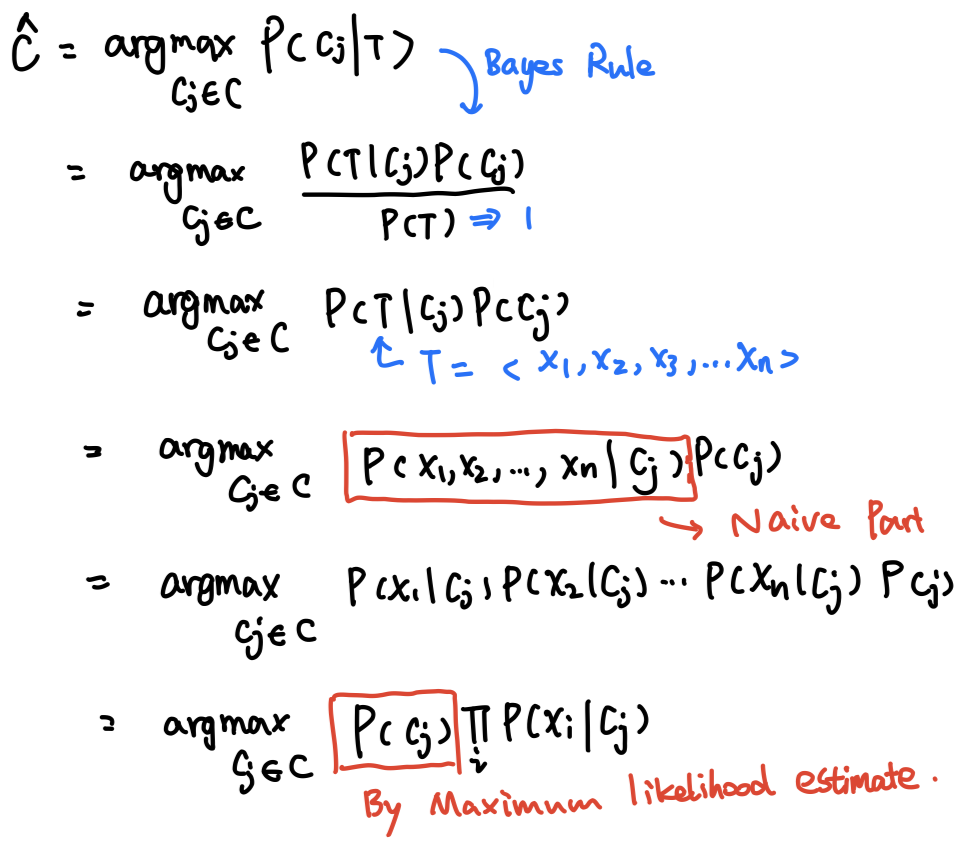 Ĉ = argmax P(Cj|T)
Cj∈C
Bayes Rule
= argmax P(T|Cj)P(Cj)
Cj∈C P(T) ⇒ 1
= argmax P(T|Cj)P(Cj)
Cj∈C
T = < x1, x2, x3, ... xn >
= argmax P(x1, x2, ..., xn|Cj) P(Cj)
Cj∈C
→ Naive Part
= argmax P(x1|Cj) P(x2|Cj) ... P(xn|Cj) P Cj)
Cj∈C
= argmax P(Cj) ∏ P(xi|Cj)
Cj∈C i
By Maximum likelihood estimate.